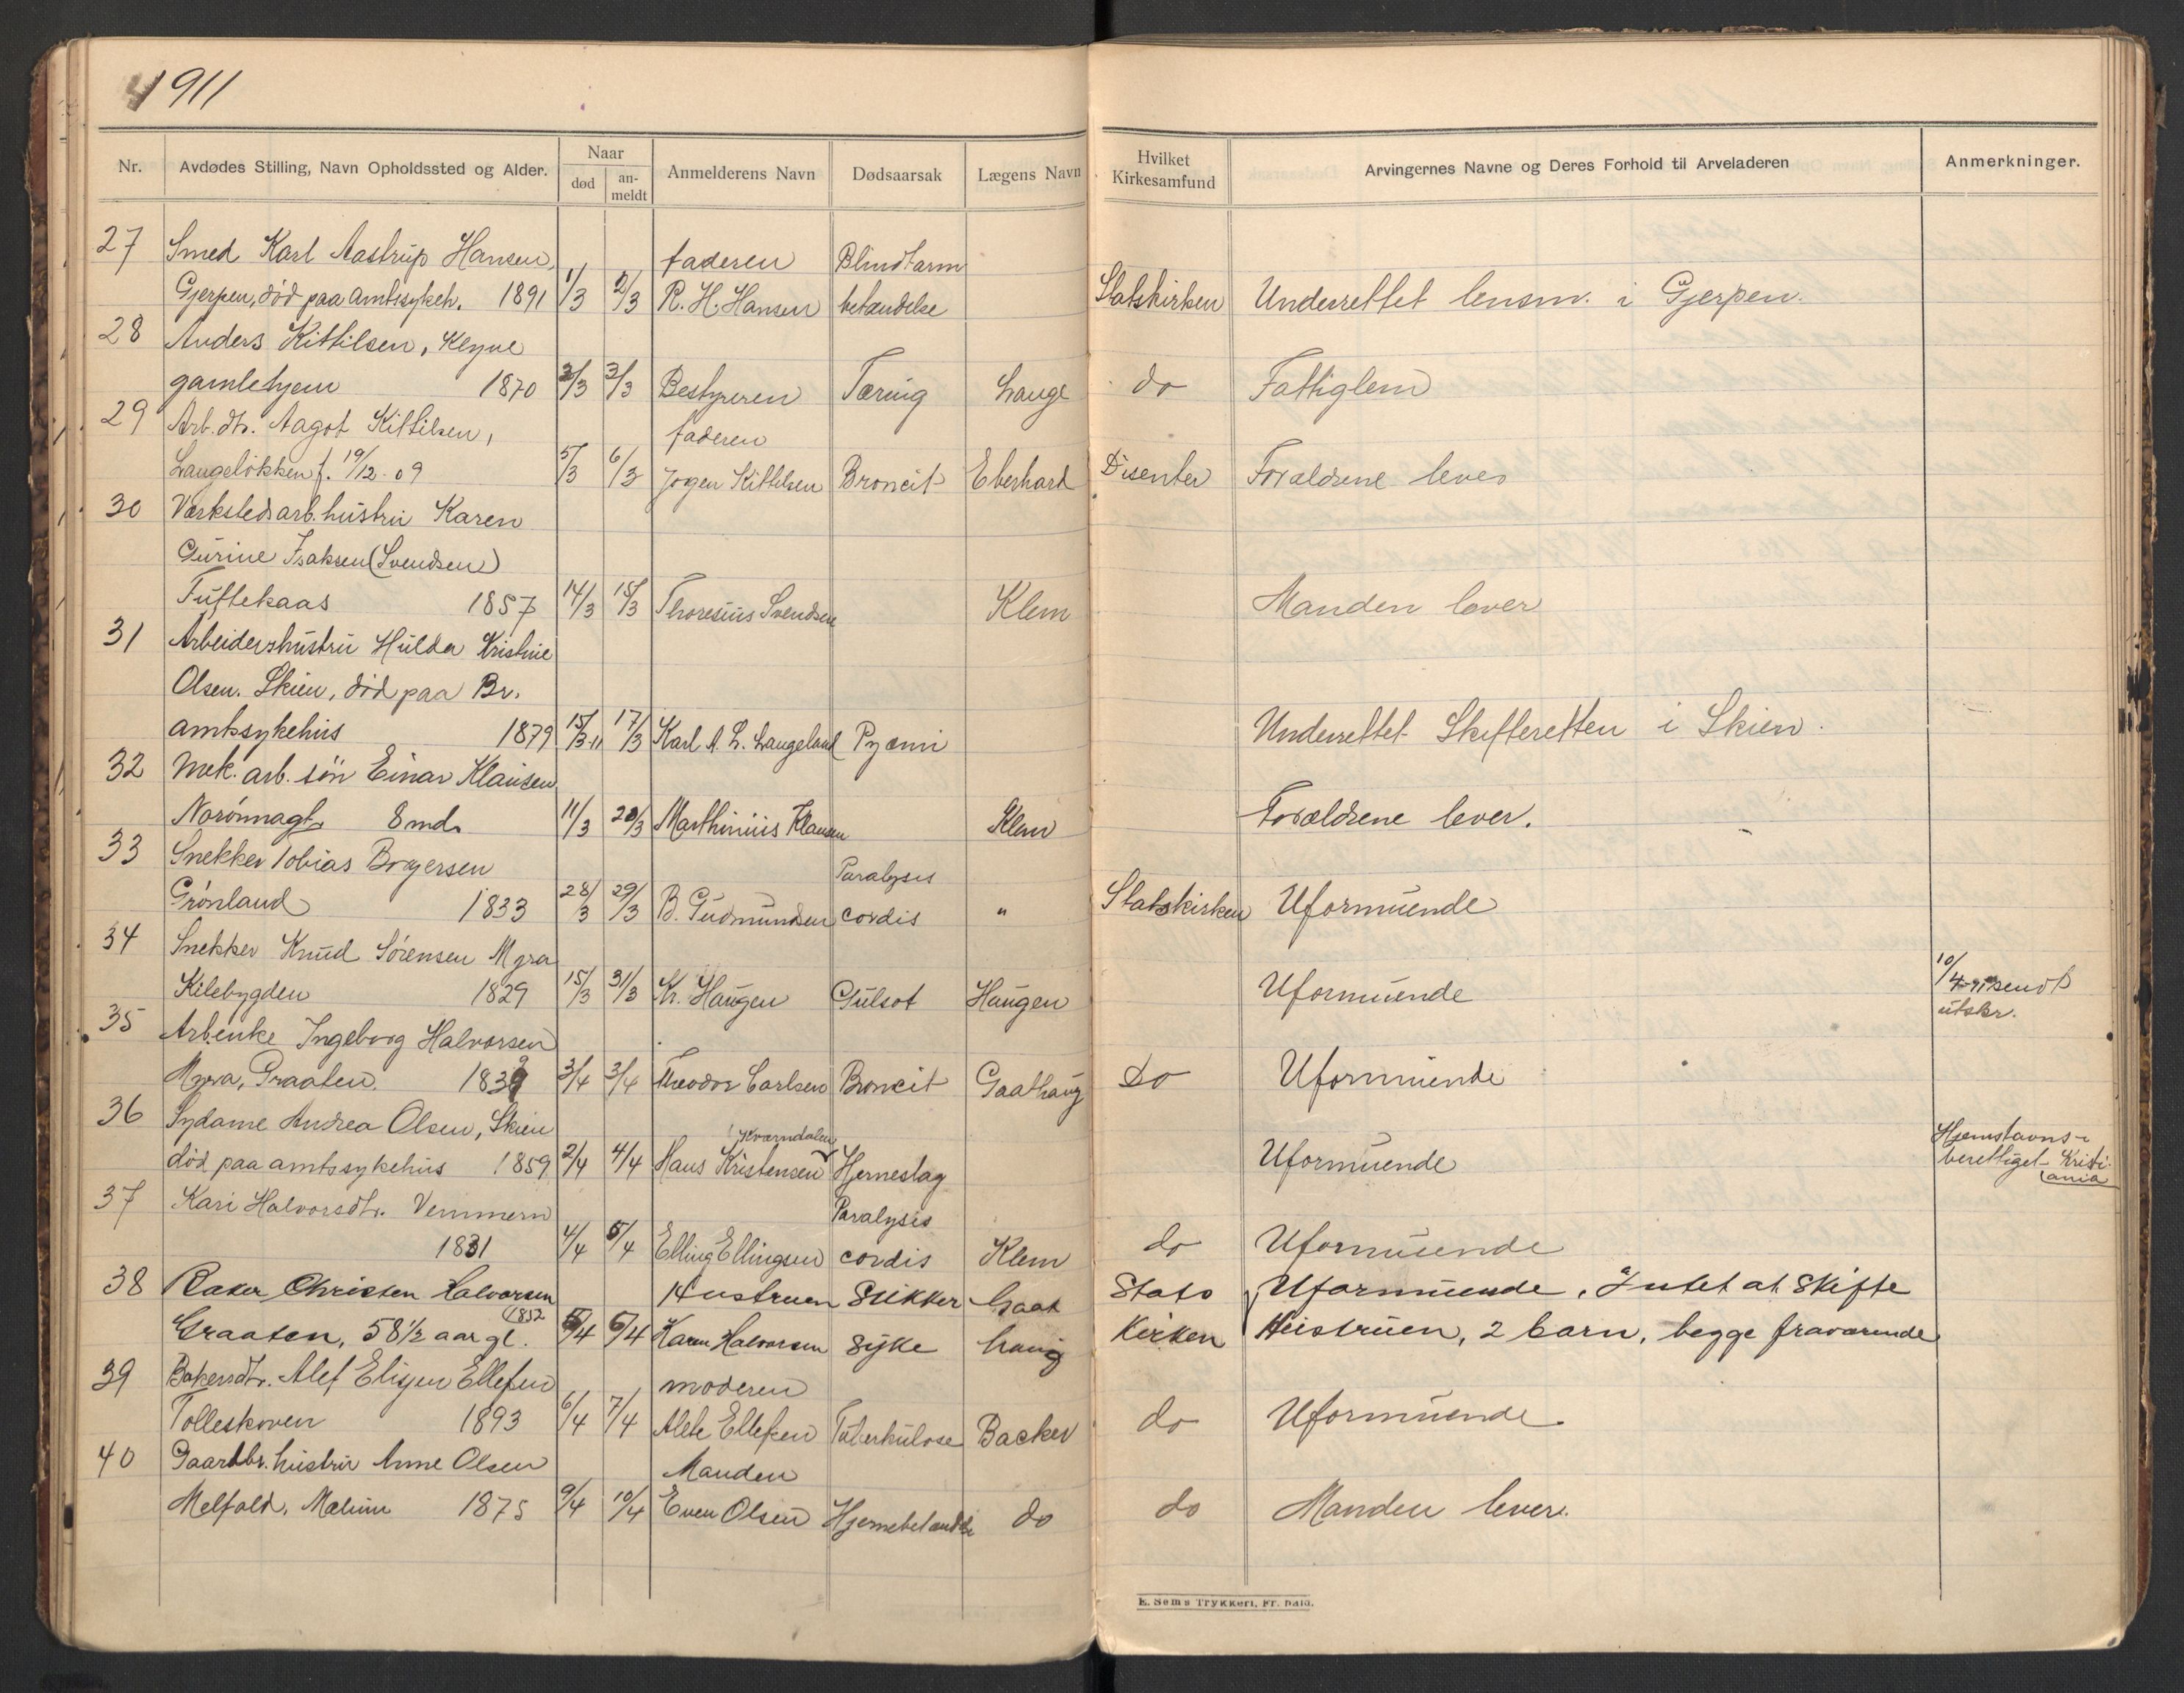 1911
Nr. Avdødes Stilling, Navn Opholdssted og Alder. Naar død an-meldt Anmelderens Navn Dødsaarsak Lægens Navn Hvilket Kirkesamfund Arvingernes Navne og Deres Forhold til Arveladeren Anmerkninger.
27 Smed Karl Aastrup Hansen, faderen Blindtarm
Gjerpen, død paa amtssykeh. 1891 1/3 2/3 R. H. Hansen betændelse Statskirken Underrettet lensm. i Gjerpen.
28 Anders Kittilsen, Klyve
gamlehjem 1870 2/3 3/3 Bestyreren Tæring Lange do Fattiglem
29 Arb. dtr. Aagot Kittilsen, faderen
Langeløkken f. 19/12-09 5/3 6/3 Jørgen Kittilsen Broncit Eberhard Disenter Forældrene lever
30 Værkstedsarb. hustru Karen
Gurine Isaksen (Svendsen)
Tuftekaas 1857 14/3 15/3 Thoresius Svendsen Klem Manden lever
31 Arbeidershustru Hulda Kristine
Olsen. Skien, død paa Br.
amtssykehus 1879 15/3-11 17/3 Karl A. L. Langeland Pyæmi Underrettet Skifteretten i Skien.
32 Mek. arb. søn Einar Klausen
8 md. 11/3 20/3 Marthinius Klausen Klem Forældrene lever.
33 Snekker Tobias Borgersen Paralysis
Grønland 1833 28/3 29/3 B. Gudmundsen cordis " Statskirken Uformuende
34 Snekker Knud Sørensen Myra 10/4-
Kilebygden 1829 15/3 31/3 Kr. Haugen Gulsot Haugen Uformuende utskr.
35 Arb.enke Ingeborg Halvorsen
Myra, Graaten. 1839 3/4 3/4 Theodor Carlsen Broncit Gaathaug do Uformuende
36 Sydame Andrea Olsen, Skien Kværndalen Hjemstavns-
død paa amtssykehus 1859 2/4 4/4 Hans Kristensen Hjerneslag Uformuende berettiget Kristi-
ania
37 Kari Halvorsdtr. Venmern Paralysis
1831 4/4 5/4 Elling Ellingsen cordis Klem do Uformuende
38 Baker Christen Halvorsen Hustruen Sukker Gaat Stats Uformuende. Intet at Skifte
1852
Graaten, 58½ aar gl. 5/4 6/4 Karen Halvorsen syke haug Kirken Hustruen, 2 barn, begge fraværende
39 Bakersdtr. Alef Elisjen Ellefsen moderen
Tolleskoven 1893 6/4 7/4 Alette Ellefsen Tuberkulose Backer do Uformuende.
40 Gaardbr. hustru Anne Olsen Manden
Melfald, Mælum 1875 9/4 10/4 Even Olsen Hjernebetændelse do do Manden lever.
E. Sem's Trykkeri, Fr.hald.